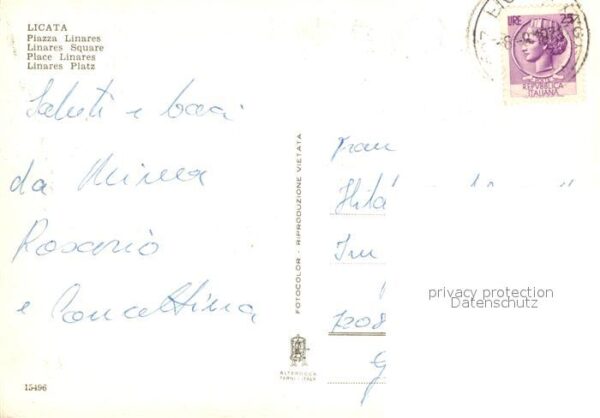 LICATA
Piazza Linares
Linares Square
Place Linares
Linares Platz
Saluti e baci
da Mirea
Rosario
e Concettina
15496
FOTOCOLOR - RIPRODUZIONE VIETATA
ALTEROCCA
TERNI - ITALIA
LIRE 25
REPVBBLICA
ITALIANA
Frau
Im
7208
privacy protection
Datenschutz